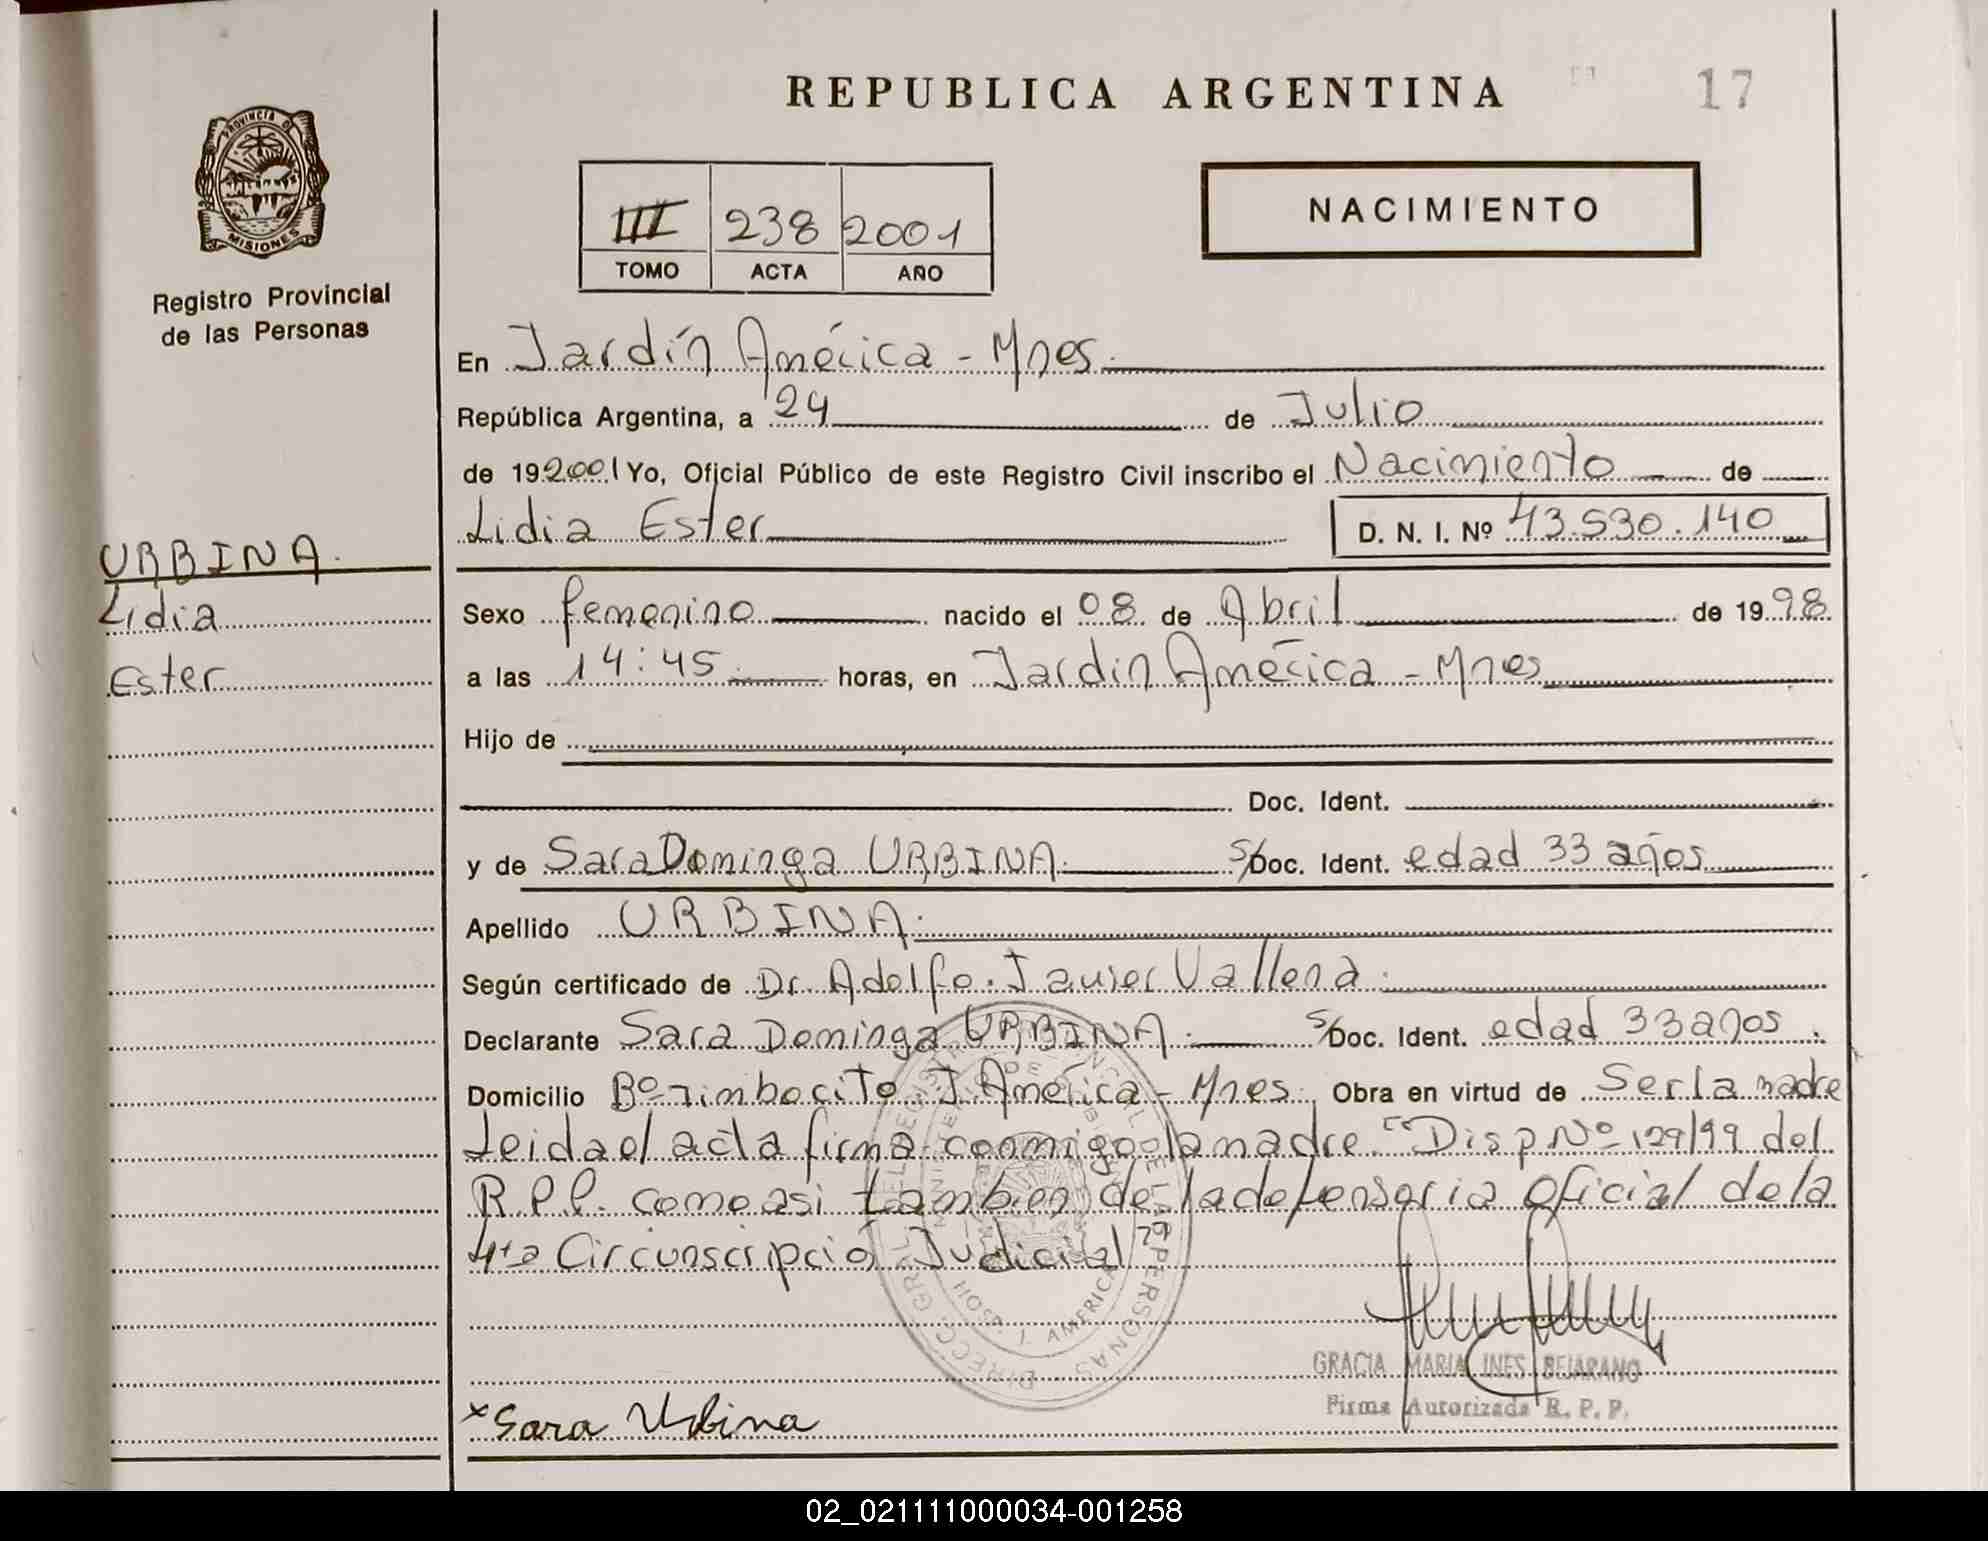 REPUBLICA ARGENTINA
17
PROVINCIA D
MISIONES
Registro Provincial
de las Personas
III 238 2001
TOMO ACTA AÑO
NACIMIENTO
En Jardín América - Mnes.
República Argentina, a 24 de Julio
de 19 2001 Yo, Oficial Público de este Registro Civil inscribo el Nacimiento de
Lidia Ester D. N. I. Nº 43.530.140
URBINA.
Lidia
Ester
Sexo femenino nacido el 08 de Abril de 19 98
a las 14:45 horas, en Jardín América - Mnes
Hijo de
Doc. Ident.
y de Sara Dominga URBINA. S/Doc. Ident. edad 33 años
Apellido URBINA.
Según certificado de Dr. Adolfo Javier Vallena.
Declarante Sara Dominga URBINA. S/Doc. Ident. edad 33 años
Domicilio Bº Timbocito J. América - Mnes. Obra en virtud de Ser la madre
Leida el acta firma conmigo la madre. "Disp Nº 129/99 del
R.P.P. como asi tambien de la defensoria oficial de la
4ta Circunscripció Judicial
GRACIA MARIA INES BEJARANO
Firma Autorizada R. P. P.
x Sara Urbina
02_021111000034-001258